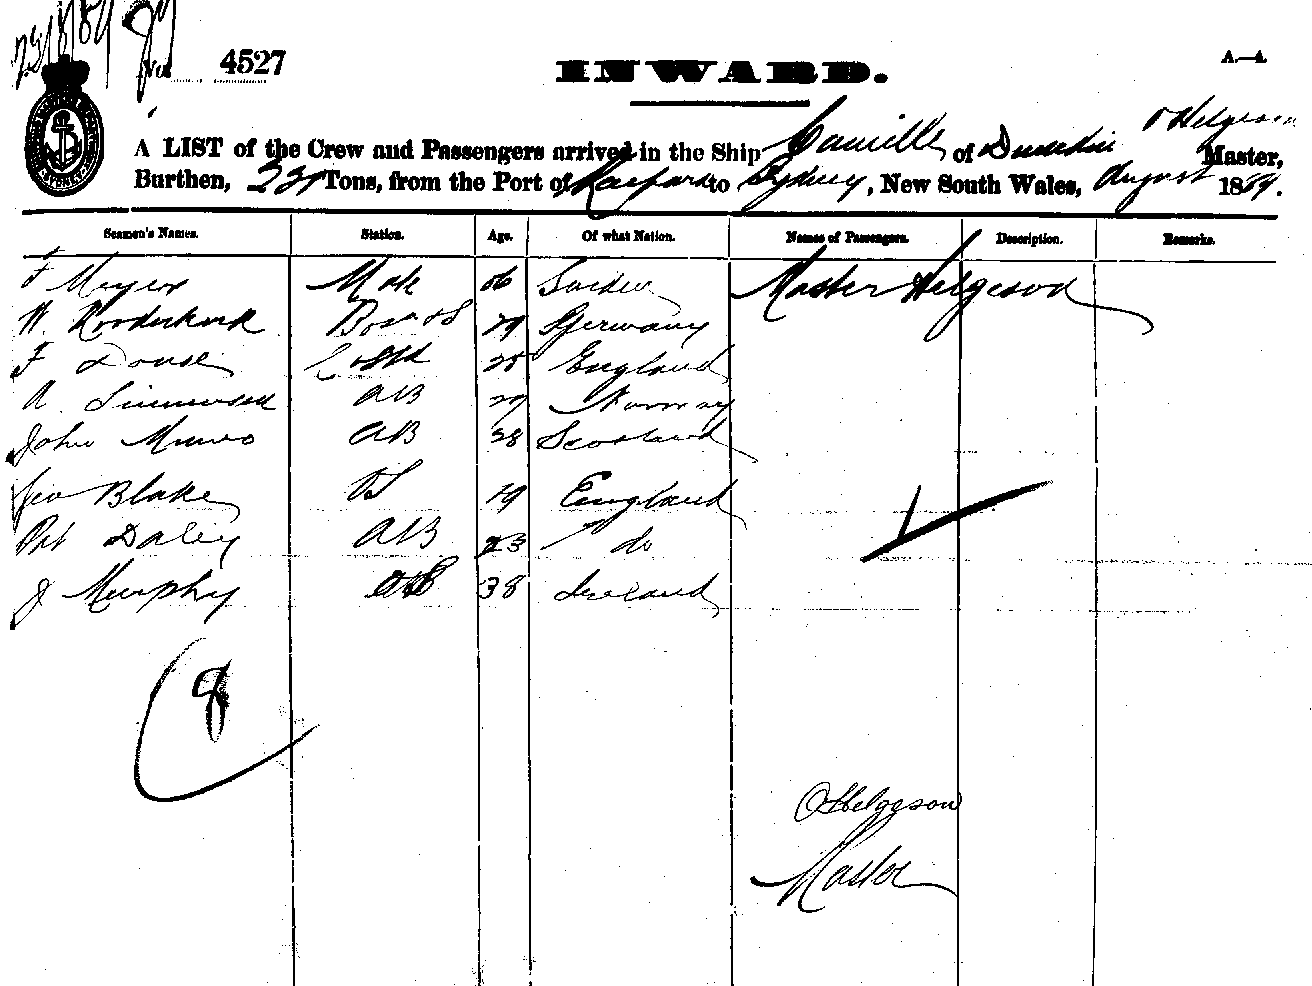 23/8/89
No. 4527
INWARD.
A.—4.
A LIST of the Crew and Passengers arrived in the Ship Camille of Dunedin O Helgeson Master,
Burthen, Tons, from the Port of to Sydney, New South Wales, August 1889.
Seamen's Names. Station. Age. Of what Nation. Names of Passengers. Description. Remarks.
F Meyer Mate Master Helgeson
W. Bos'n 29 Germany
F England
A. AB 29 Norway
John Munro AB 28 Scotland
Geo Blake OS 19 England
Pat Daley AB 23 do
J Murphy 38 Ireland
O Helgeson
Master